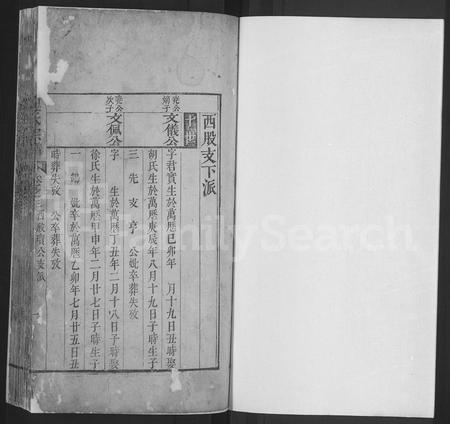 西股支下派
堯公嫡子文儀公字君實生於萬曆己卯年 月十九日丑時娶
胡氏生於萬曆庚辰年八月十九日子時生子
三 先 支 亨 公妣卒葬失攷
堯公次子文佩公字 生於萬曆丁丑年二月十八日子時娶
徐氏生於萬曆甲申年二月廿七日子時生子
一 妣卒於萬曆乙卯年七月廿五日丑
時葬失攷 公卒葬失攷
FamilySearch